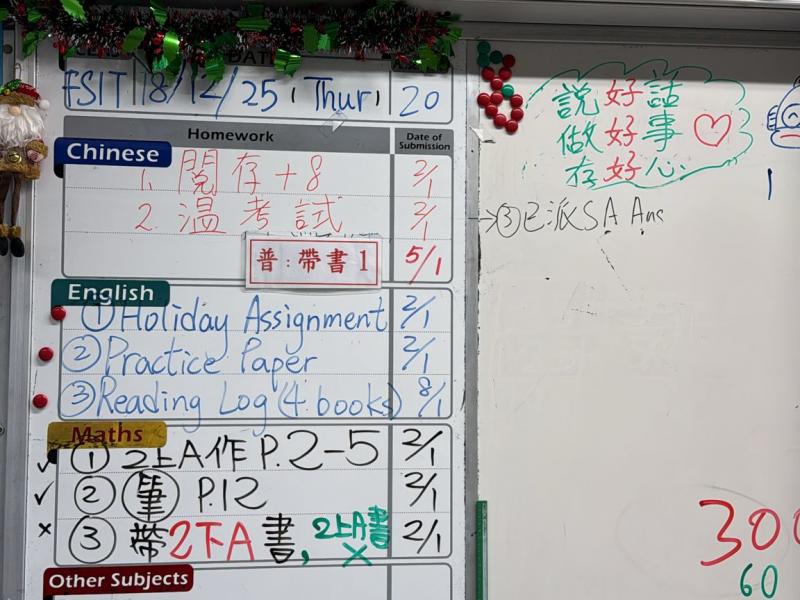 DATE
FSIT 18/12/25 (Thur) 20
Homework Date of Submission
Chinese
1. 閱存+8 2/1
2. 溫考試 2/1
普：帶書1 5/1
English
① Holiday Assignment 2/1
② Practice Paper 2/1
③ Reading Log (4 books) 8/1
Maths
✓ ① 2上A作 P.2-5 2/1
✓ ② 筆 P.12 2/1
× ③ 帶2下A書, 2上A書 × 2/1
Other Subjects
說好話
做好事 ♡
存好心.
1
→③已派SA Ans
300
60